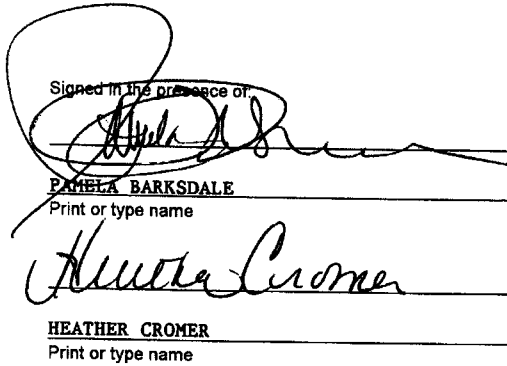 Signed in the presence of:
PAMELA BARKSDALE
Print or type name
Heather Cromer
HEATHER CROMER
Print or type name